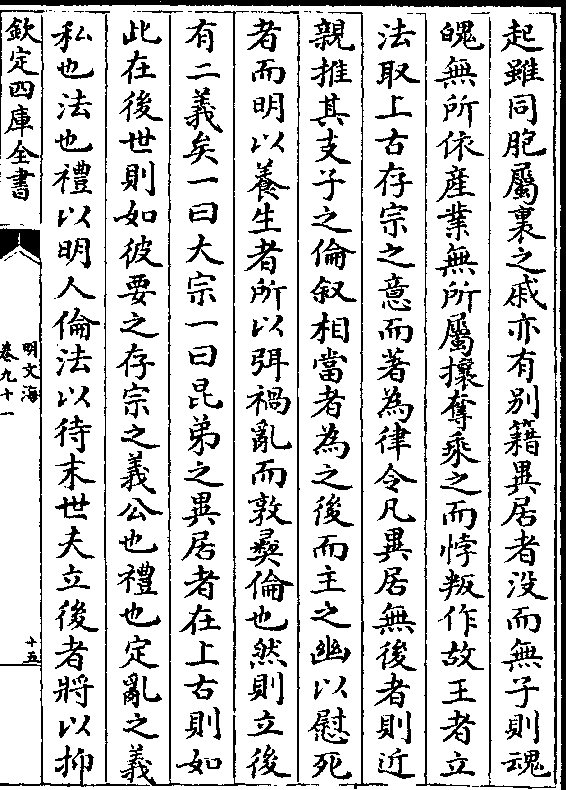 起雖同胞屬裏之戚亦有别籍異居者没而無子則魂
魄無所依産業無所屬攘奪乘之而悖叛作故王者立
法取上古存宗之意而著為律令凡異居無後者則近
親推其支子之倫叙相當者為之後而主之幽以慰死
者而明以養生者所以弭禍亂而敦彛倫也然則立後
有二義矣一曰大宗一曰昆弟之異居者在上古則如
此在後世則如彼要之存宗之義公也禮也定亂之義
私也法也禮以明人倫法以待末世夫立後者將以抑
欽定四庫全書
明文海
卷九十一
十五